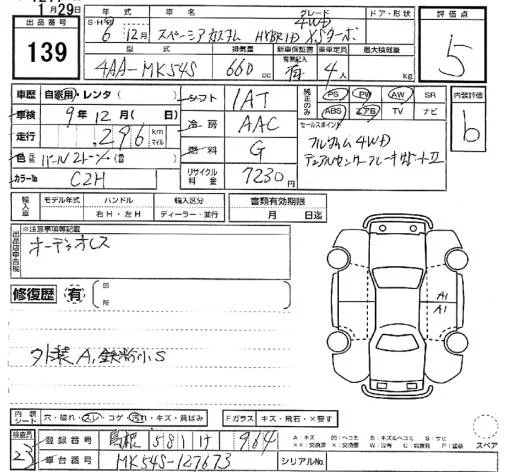 1月29日
出品番号
139
年式 車名 グレード ドア・形状
S・H・R 6年12月 スペーシアカスタム HYBRID XSターボ 4WD
型式 排気量 新車保証書 乗車定員 最大積載量
4AA-MK54S 660cc 有無記入 有 4人 kg
評価点
5
車歴 自家用・レンタ( )
シフト 1AT
純正のみ PS PW AW SR
ABS エアB TV ナビ
内装評価
b
車検 9年12月( 日)
冷房 AAC
セールスポイント
フルタイム4WD
デュアルセンサーブレーキサポートⅡ
走行 296 km マイル
燃料 G
色 パールツートン(替)
カラーNo C2H
リサイクル料金 7230円
輸入車 モデル年式 ハンドル 輸入区分
年 右H・左H ディーラー・並行
書類有効期限
月 日迄
出品店申告欄
※注意事項等記載
オーディオレス
修復歴 有
箇所
A1
A1
外装A,鉄粉小S
内装シート 穴・破れ・スレ・コゲ・汚れ・キズ・肩ばみ
Fガラス キズ・飛石・×要す
検査員
23
登録番号 島根 581 け 964
車台番号 MK54S-127673
シリアルNo.
スペア